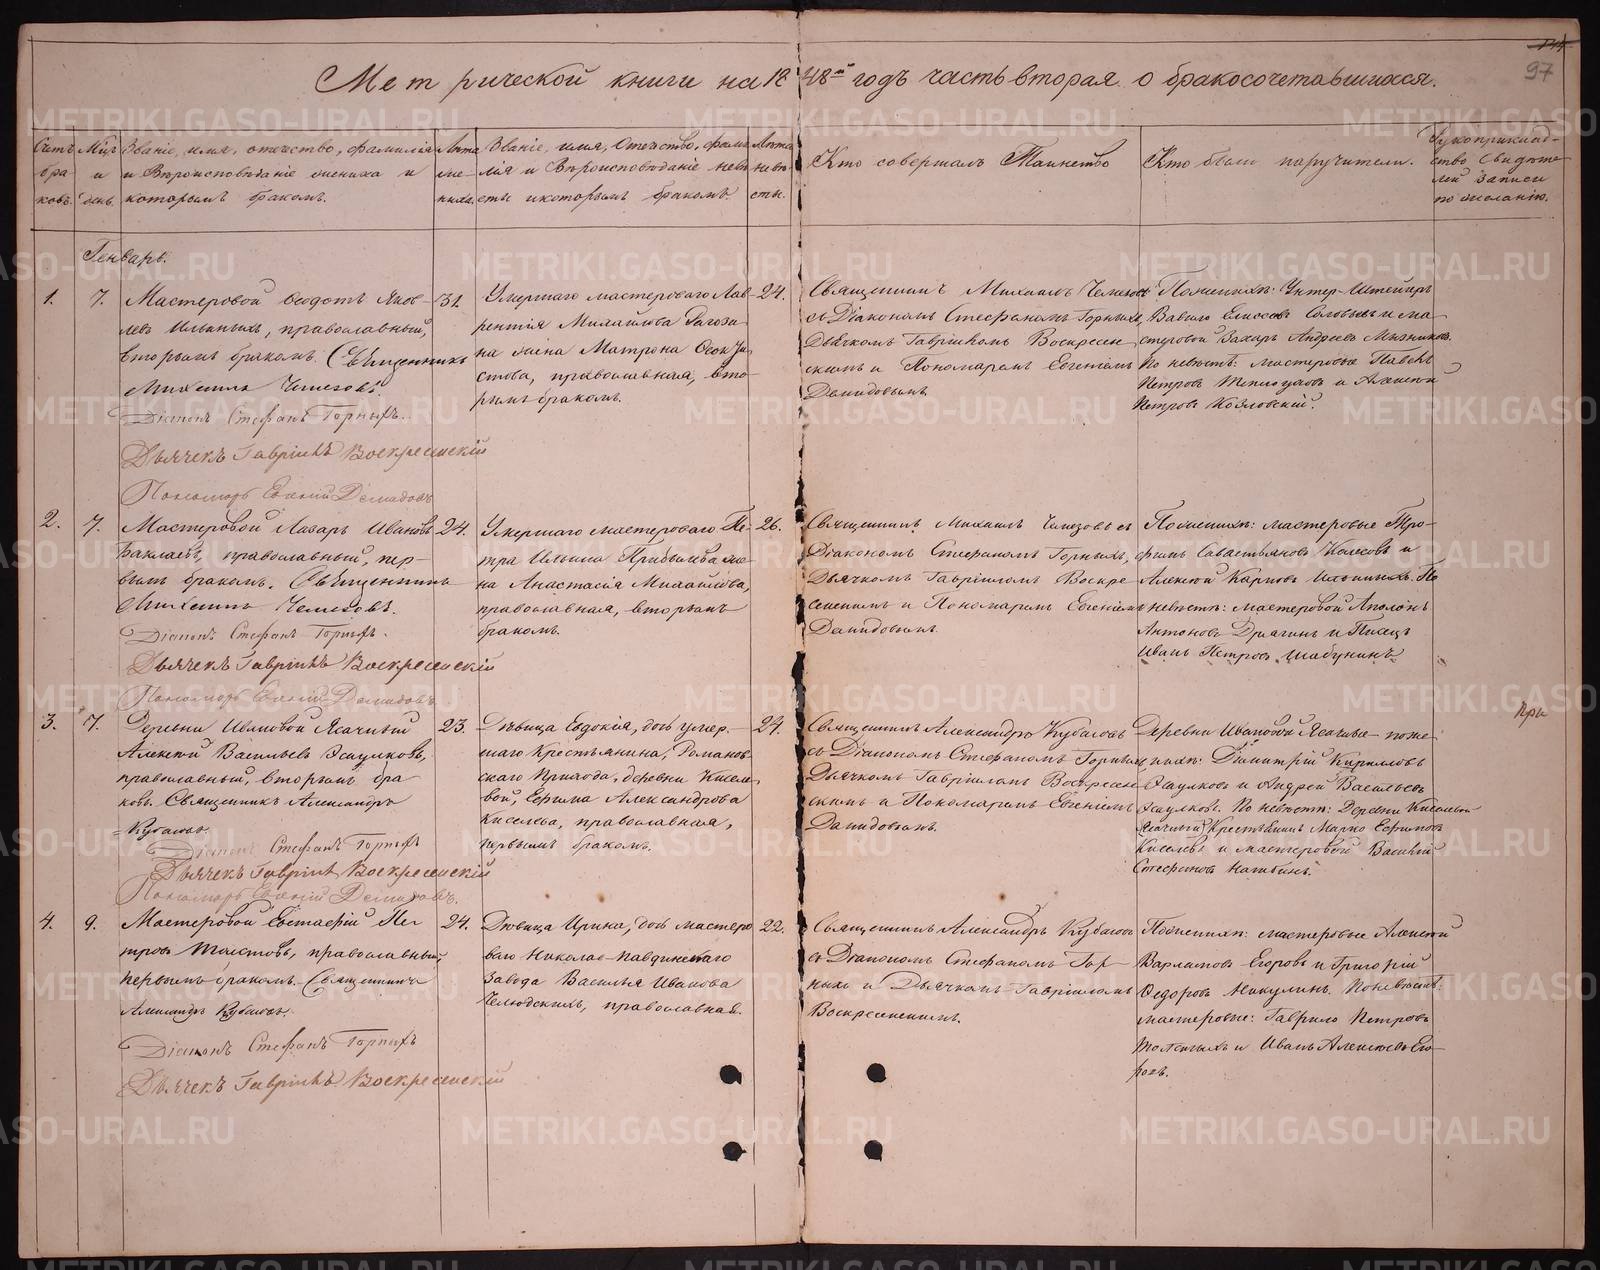 97
Метрической книги на 1848й годъ часть вторая о бракосочетавшихся.
Счетъ браковъ.
Мѣс. и день.
Званіе, имя, отечество, фамилія
и Вѣроисповѣданіе жениха и
которымъ бракомъ.
Лѣта
же-
ниха.
Званіе, имя, Отечество, фами-
лія и Вѣроисповѣданіе невѣ-
сты и которымъ бракомъ.
Лѣта
невѣ-
сты.
Кто совершалъ Таинство
Кто были поручители.
Рукоприклад-
ство Свидѣте-
лей записи
по желанію.
Генварь.
1.
7.
Мастеровой Ѳеодотъ Яков-
левъ Ильиныхъ, православный,
вторымъ бракомъ. Священникъ
Михаилъ Чемезовъ.
Діаконъ Стефанъ Горныхъ.
Дьячекъ Гавріилъ Воскресенскій
Пономарь Евгеній Демидовъ
31.
Умершаго мастероваго Лав-
рентія Михайлова Рагози-
на жена Матрона Ѳеокти-
стова, православная, вто-
рымъ бракомъ.
24.
Священникъ Михаилъ Чемезовъ
съ Діакономъ Стефаномъ Горныхъ,
Дьячкомъ Гавріиломъ Воскресен-
скимъ и Пономаремъ Евгеніемъ
Демидовымъ
По женихѣ: Унтер-Штейгеръ
Вавило Елисеевъ Соловьевъ и ма-
стеровой Захаръ Андреевъ Мызниковъ.
По невѣстѣ: мастеровые Павелъ
Петровъ Теплоуховъ и Алексѣй
Петровъ Козловскій.
2.
7.
Мастеровой Лазарь Ивановъ
Баклаевъ, православный, пер-
вымъ бракомъ. Священникъ
Михаилъ Чемезовъ.
Діаконъ Стефанъ Горныхъ.
Дьячекъ Гавріилъ Воскресенскій
Пономарь Евгеній Демидовъ
24.
Умершаго мастероваго Пе-
тра Ильина Прибылева же-
на Анастасія Михайлова,
православная, вторымъ
бракомъ.
26.
Священникъ Михаилъ Чемезовъ съ
Діакономъ Стефаномъ Горныхъ,
Дьячкомъ Гавріиломъ Воскре-
сенскимъ и Пономаремъ Евгеніемъ
Демидовымъ
По женихѣ: мастеровые Тро-
фимъ Савастьяновъ Колесовъ и
Алексѣй Карповъ По
невѣстѣ: мастеровой Аполонъ
Антоновъ Драгинъ и Писецъ
Иванъ Петровъ Шабунинъ
3.
7.
Деревни Ивановой Ясачный
Алексѣй Васильевъ Эсаулковъ,
православный, вторымъ бра-
комъ. Священникъ Александръ
Кубасовъ.
Діаконъ Стефанъ Горныхъ
Дьячекъ Гавріилъ Воскресенскій
Пономарь Евгеній Демидовъ.
23.
Дѣвица Евдокія, дочь умер-
шаго Крестьянина, Романов-
скаго Прихода, деревни Киселе-
вой, Ефима Александрова
Киселева, православная,
первымъ бракомъ.
24.
Священникъ Александръ Кубасовъ
съ Діакономъ Стефаномъ Горныхъ,
Дьячкомъ Гавріиломъ Воскресен-
скимъ и Пономаремъ Евгеніемъ
Демидовымъ.
Деревни Ивановой Ясачные по же-
нихѣ: Димитрій Кирилловъ
Эсаулковъ и Андрей Васильевъ
Эсаулковъ. По невѣстѣ: Деревни Киселевой
Крестьянинъ Марко Ефимовъ
Киселевъ и мастеровой Василій
Стефановъ Нагибинъ.
при
4.
9.
Мастеровой Евстафій Пе-
тровъ Толстовъ, православный,
первымъ бракомъ. Священникъ
Александръ Кубасовъ.
Діаконъ Стефанъ Горныхъ
Дьячекъ Гавріилъ Воскресенскій
24.
Дѣвица Ирина, дочь мастеро-
ваго Николае-Павдинскаго
Завода Василья Иванова
Челюдскихъ, православная.
22.
Священникъ Александръ Кубасовъ
съ Діакономъ Стефаномъ Гор-
ныхъ и Дьячкомъ Гавріиломъ
Воскресенскимъ.
По женихѣ: мастеровые Алексѣй
Варламовъ Егоровъ и Григорій
Ѳедоровъ Никулинъ. По невѣстѣ:
мастеровые: Гаврило Петровъ
Толстыхъ и Иванъ Алексѣевъ Его-
ровъ.
METRIKI.GASO-URAL.RU